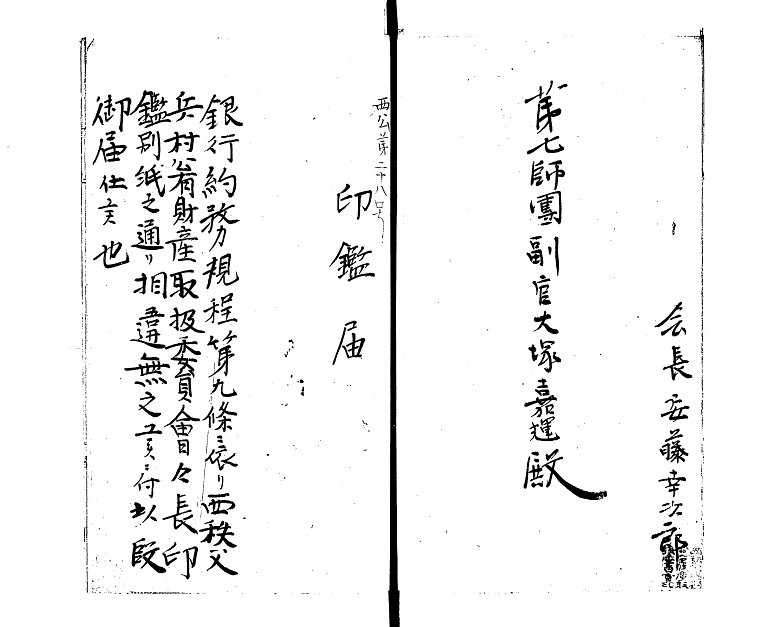 会長 安藤幸次郎
第七師團副官大塚嘉輝殿
西公第二十八号
印鑑届
銀行約務規程第九條ニ依リ西秩父
兵村公有財産取扱委員會々長印
鑑別紙之通リ相違無之
御届仕
也